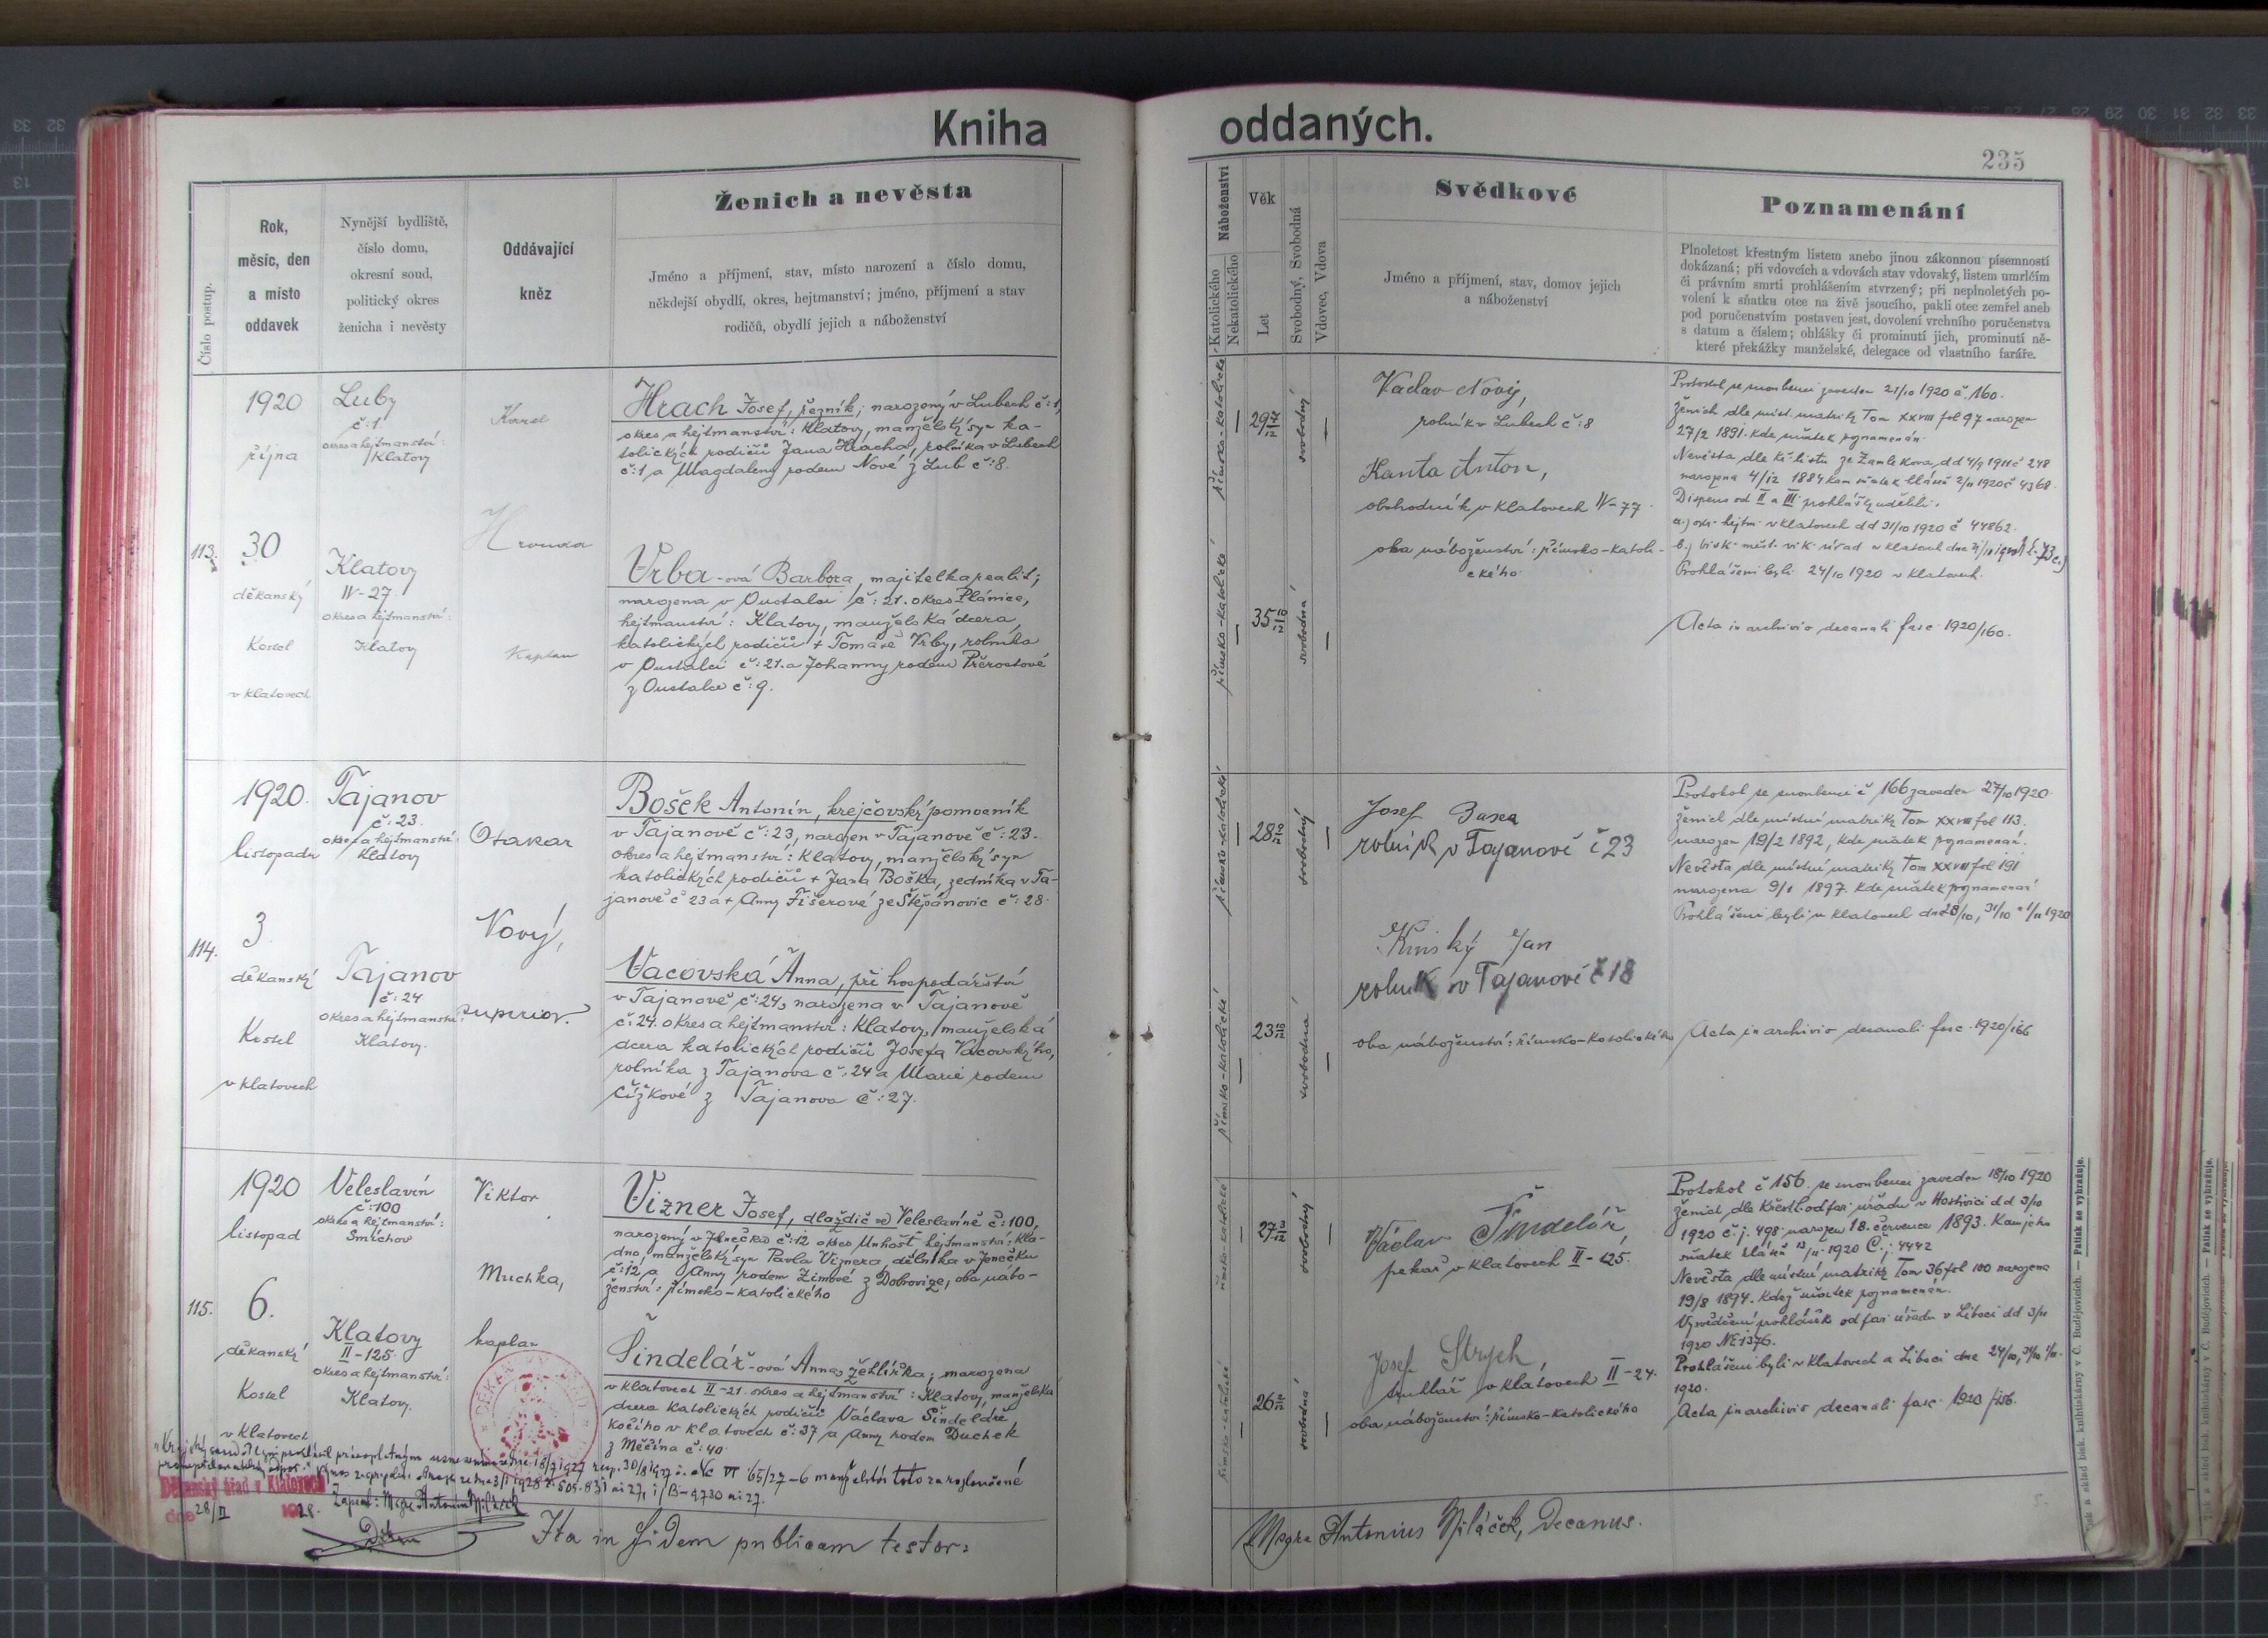 Kniha oddaných.
235
Číslo postup.
Rok,
měsíc, den
a místo
oddavek
Nynější bydliště,
číslo domu,
okresní soud,
politický okres
ženicha i nevěsty
Oddávající
kněz
Ženich a nevěsta
Jméno a příjmení, stav, místo narození a číslo domu,
někdejší obydlí, okres, hejtmanství; jméno, příjmení a stav
rodičů, obydlí jejich a náboženství
Náboženství
Katolického
Nekatolického
Věk
Let
Svobodný, Svobodná
Vdovec, Vdova
Svědkové
Jméno a příjmení, stav, domov jejich
a náboženství
Poznamenání
Plnoletost křestným listem anebo jinou zákonnou písemností
dokázaná; při vdovcích a vdovách stav vdovský, listem umrlčím
či právním smrti prohlášením stvrzený; při neplnoletých po-
volení k sňatku otce na živě jsoucího, pakli otec zemřel aneb
pod poručenstvím postaven jest, dovolení vrchního poručenstva
s datum a číslem; ohlášky či prominutí jich, prominutí ně-
které překážky manželské, delegace od vlastního faráře.
113.
1920
října
30
děkanský
Kostel
v Klatovech
Luby
č:1
okres a hejtmanství:
Klatovy
Klatovy
IV-27
okres a hejtmanství:
Klatovy
Karel
Hrouda
Kaplan
Hrach Josef, řezník; narozený v Lubech č:1,
okres a hejtmanství: Klatovy, manželský syn ka-
tolických rodičů Jana Hracha, rolníka v Lubech
č:1 a Magdaleny rodem Nové z Lub č:8.
Vrba-ová Barbora, majitelka realit;
narozena v Oustalci č:21. okres Plánice,
hejtmanství: Klatovy, manželská dcera
katolických rodičů + Tomáše Vrby, rolníka
v Oustalci č:21. a Johanny rodem Přerostové
z Oustalce č:9.
římsko-katolické
29
svobodný
římsko-katolické
35 10/12
svobodná
Václav Nový,
rolník v Lubech č:8
Kanta Anton,
obchodník v Klatovech IV-77
oba náboženství: římsko-katoli-
ckého
Protokol se snoubenci zaveden 21/10 1920 č. 160.
Ženich dle míst. matriky Tom XXVIII fol 97 narozen
27/2 1891. kde sňatek poznamenán.
Nevěsta dle kř. listu ze Zamlekova, dd 4/9 1911 č 248
narozena 4/12 1884 kam sňatek hlášen 2/11 1920 č 4368.
Dispens od II a III prohlášky udělili:
a.) okr. hejtm. v Klatovech dd 31/10 1920 č 44862.
b.) bisk. měst. vik. úřad v Klatovech dne
Prohlášeni byli 24/10 1920 v Klatovech.
Acta in archivio decanali fasc. 1920/160.
114.
1920.
listopadu
3
děkanský
Kostel
v Klatovech
Tajanov
č:23.
okres a hejtmanství:
Klatovy
Tajanov
č:24
okres a hejtmanství:
Klatovy.
Otakar
Nový,
superior.
Bošek Antonín, krejčovský pomocník
v Tajanově č:23, narozen v Tajanově č:23.
okres a hejtmanství: Klatovy, manželský syn
katolických rodičů + Jana Boška, zedníka v Ta-
janově č 23 a + Anny Fišerové ze Štěpánovic č:28.
Vacovská Anna, při hospodářství
v Tajanově č:24, narozena v Tajanově
č:24. okres a hejtmanství: Klatovy, manželská
dcera katolických rodičů Josefa Vacovského,
rolníka z Tajanova č:24 a Marie rodem
Čížkové z Tajanova č:27.
římsko-katolické
28
svobodný
římsko-katolické
23 10/12
svobodná
Josef
rolník v Tajanově č 23
Kinský Jan
rolník v Tajanově č 18
oba náboženství: římsko-katolického
Protokol se snoubenci č 166 zaveden 27/10 1920.
Ženich dle místní matriky Tom XXVIII fol 113.
narozen 19/2 1892, kde sňatek poznamenán.
Nevěsta dle místní matriky Tom XXVIII fol 191
narozena 9/1 1897. kde sňatek poznamenán
Prohlášeni byli v Klatovech dne 28/10, 31/10 a 1/11 1920
Acta in archivio decanali fasc. 1920/166
115.
1920
listopad
6.
děkanský
Kostel
v Klatovech
Veleslavín
č:100
okres a hejtmanství:
Smíchov
Klatovy
II-125.
okres a hejtmanství:
Klatovy.
Viktor
Muchka,
kaplan
Vizner Josef, dlaždič ve Veleslavíně č:100,
narozený v Jenečku č:12 okres Unhošť hejtmanství: Kla-
dno, manželský syn Pavla Viznera, dělníka v Jenečku
č:12 a Anny rodem Zimové z Dobrovize, oba nábo-
ženství: římsko-katolického
Šindelář-ová Anna, žehlířka; narozena
v Klatovech II-21. okres a hejtmanství: Klatovy, manželská
dcera katolických rodičů Václava Šindeláře
kočího v Klatovech č:37 a Anny rodem Duchek
z Měčína č:40.
římsko-katolické
27
svobodný
římsko-katolické
26
svobodná
Václav Šindelář,
pekař v Klatovech II-125.
Josef Strych
truhlář v Klatovech II-24.
oba náboženství: římsko-katolického
Protokol č 156. se snoubenci zaveden 18/10 1920
Ženich, dle křest. l. od far. úřadu v Hostivici dd 3/10
1920 č.j. 498 narozen 18. července 1893. Kam jeho
sňatek hlášen 13/11 1920 Č.j. 4442
Nevěsta dle místní matriky Tom 36 fol 100 narozena
19/8 1894. kdež sňatek poznamenán.
Vysvědčení prohlášek od far. úřadu v Liboci dd 3/11
1920 № 1376.
Prohlášeni byli v Klatovech a Liboci dne 24/10, 31/10 1/11.
1920.
Acta in archivio decanali fasc. 1920/156.
"Krajský soud prohlásil právoplatným usnesením ze dne 18/7 1927 resp. 30/8 1927 č. Nc VI 65/27-6 manželství toto za rozloučené
Děkanský úřad v Klatovech
dne 28/II 1928.
Zapsal: Msgr. Antonín Špiláček
Děkan
Ita in fidem publicam testor:
Msgre Antonius Špiláček, Decanus.
Tisk a sklad bisk. knihtiskárny v Č. Budějovicích. — Patisk se vyhražuje.